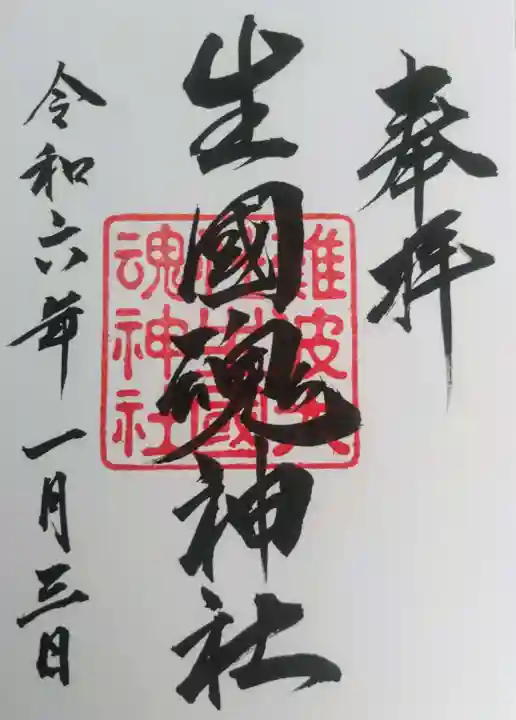 奉拝
生國魂神社
難波大
社生國
魂神社
令和六年一月三日